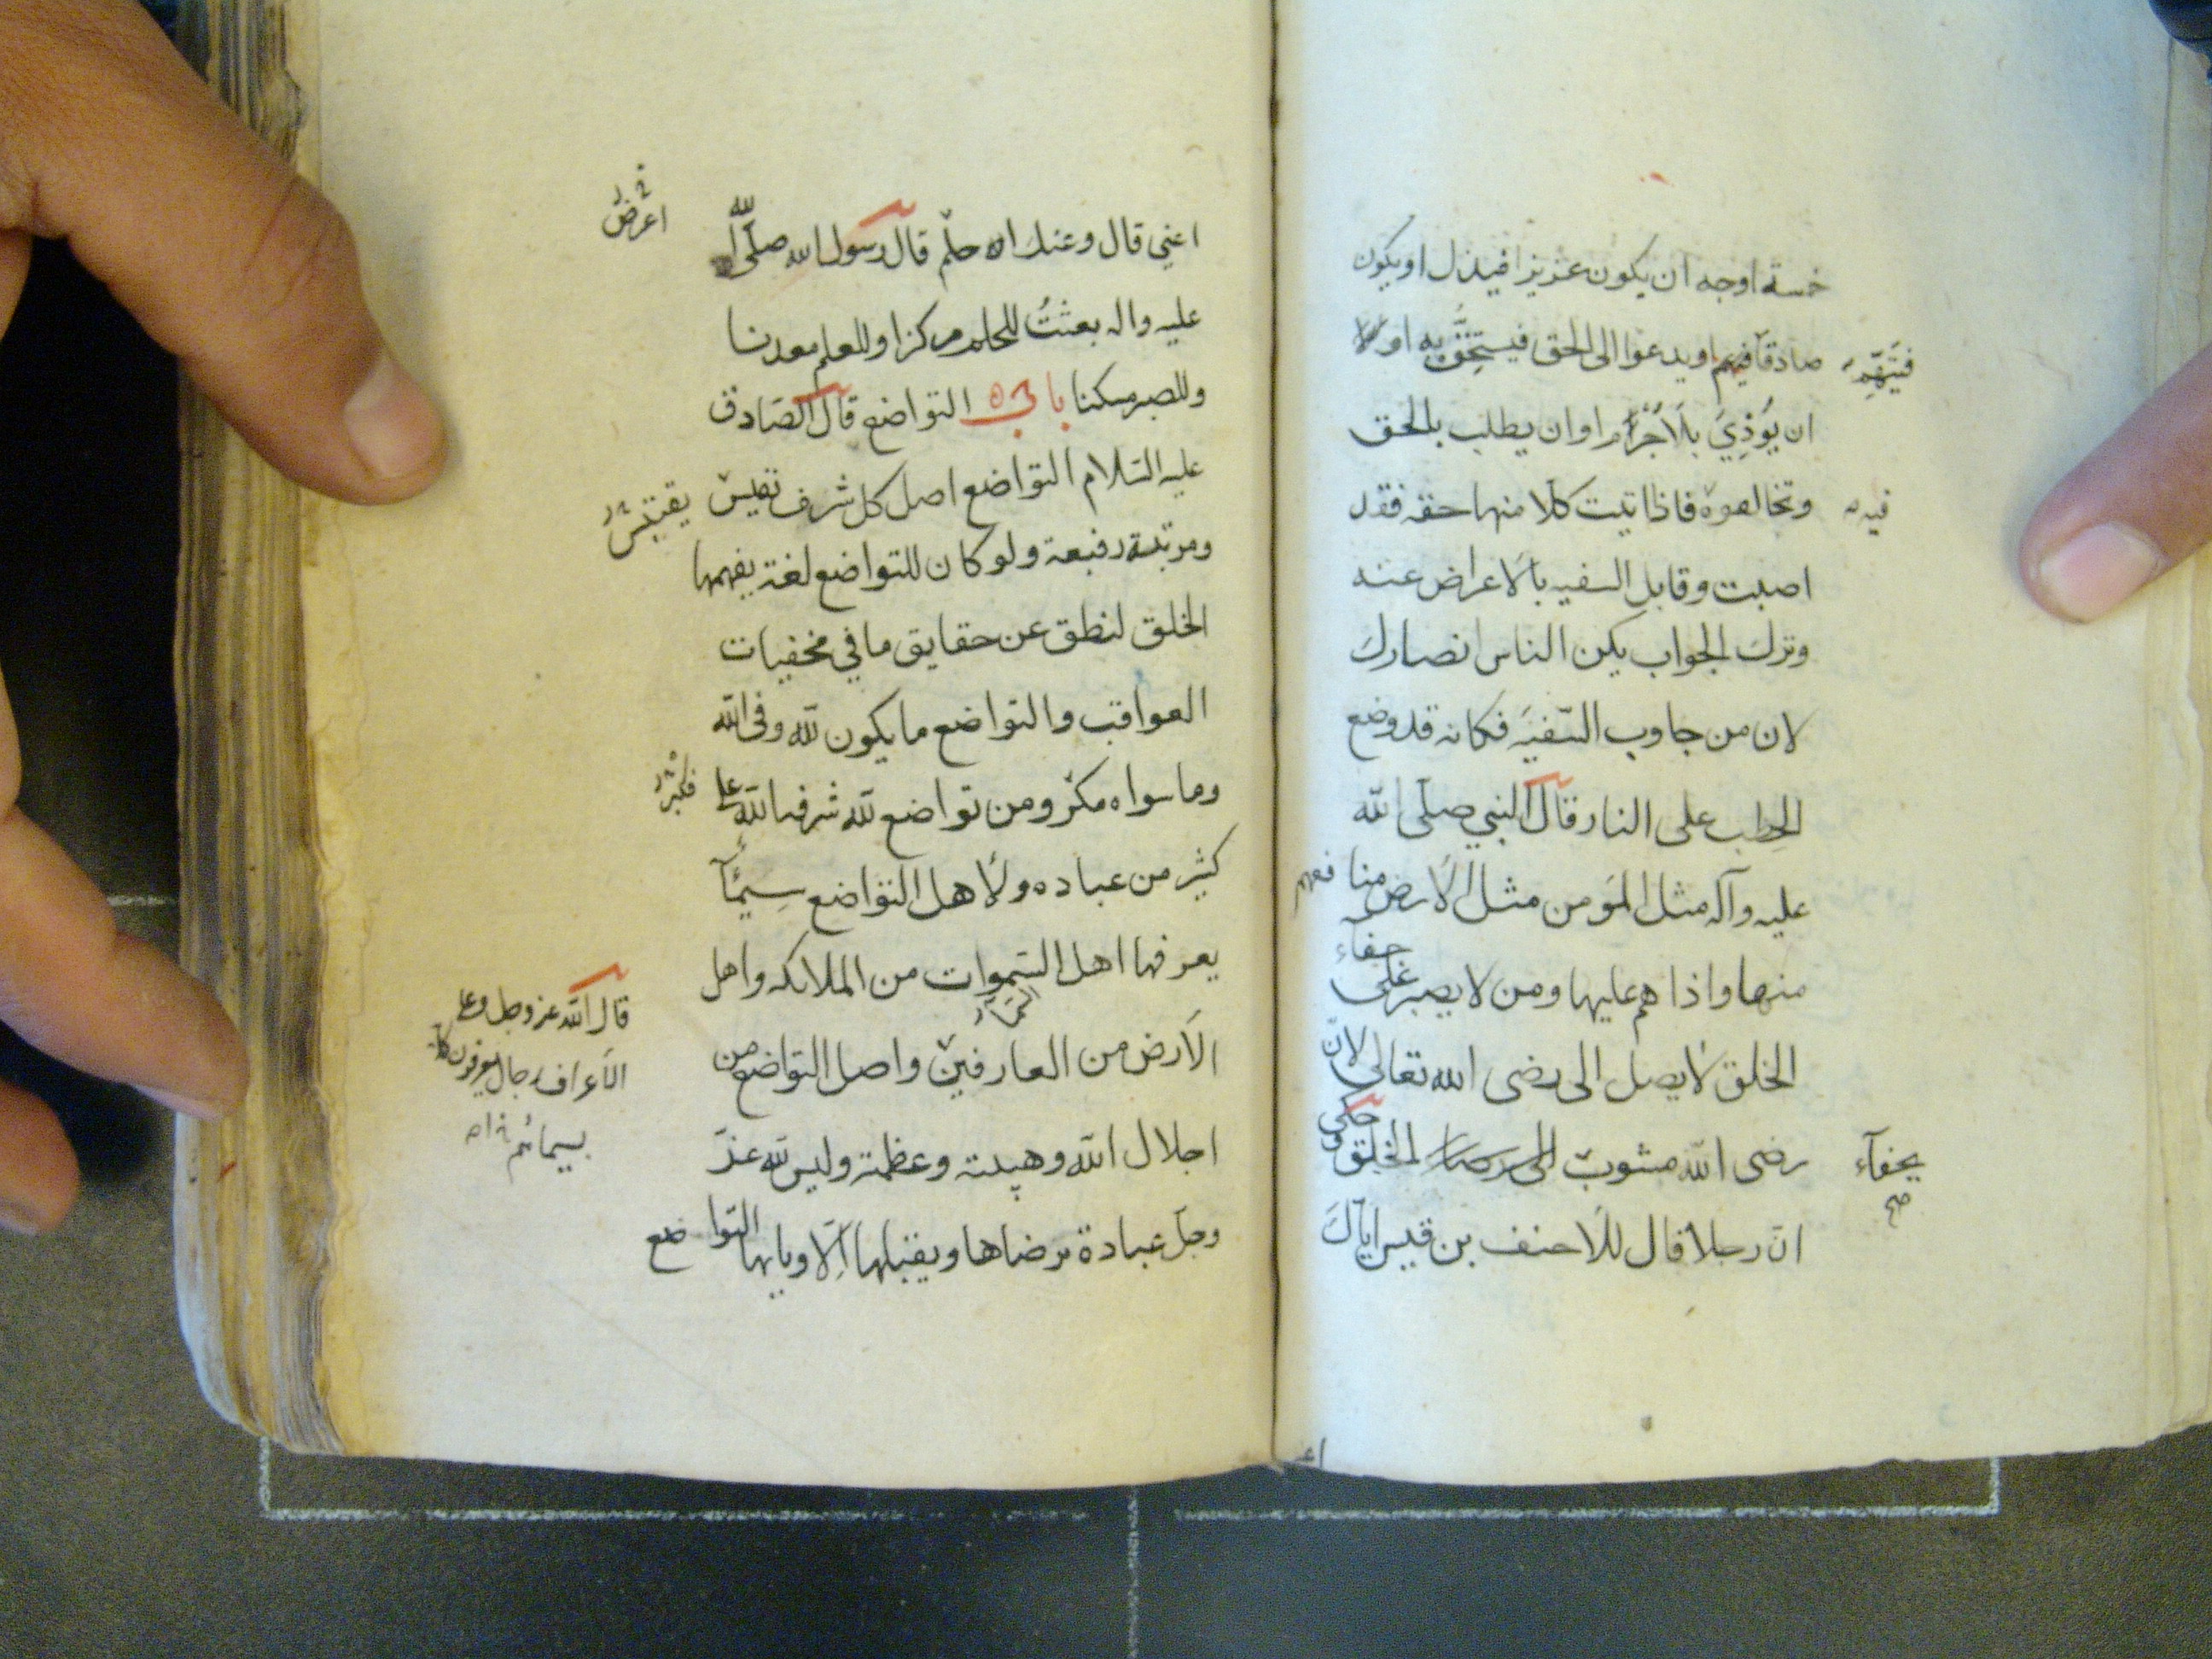 خمسة اوجه ان يكون عزيزا فيذل او يكون
صادقا فيهم او يدعوا الى الحق فيستخف به او لا
فيتهم
ان يؤذي بلا جرم او ان يطلب بالحق
وتخالفوه فاذا اتيت كلا منها حقه فقد
فيه
اصبت وقابل السفيه بالاعراض عنه
وترك الجواب يكن الناس انصارك
لان من جاوب السفيه فكانه قد وضع
الحطب على النار قال النبي صلى الله
عليه وآله مثل المؤمن مثل الارض منافعهم
منها واذاهم عليها ومن لا يصبر على
جفآء
الخلق لا يصل الى رضى الله تعالى لان
رضى الله مشوب الخلق وحكى
بجفآء صح
ان رجلا قال للاحنف بن قيس اياك
اعني قال وعنك احلم قال رسول الله صلى الله
اعرض
عليه واله بعثت للحلم مركزا وللعلم معدنا
وللصبر مسكنا باب التواضع قال الصادق
عليه السلام التواضع اصل كل شرف نفيس
ومرتبة رفيعة ولو كان للتواضع لغة يفهمها
الخلق لنطق عن حقايق ما في مخفيات
العواقب والتواضع ما يكون لله وفى الله
وما سواه مكر ومن تواضع لله شرفه الله على
كثير من عباده ولاهل التواضع سيمآ
يعرفها اهل السموات من الملائكه واهل
الارض من العارفين واصل التواضع من
قال الله عز وجل وعلى
الاعراف رجال يعرفون كلا
بسيمائهم
اجلال الله وهيبته وعظمته وليس لله عز
وجل عبادة يرضاها ويقبلها الا وبابها التواضع